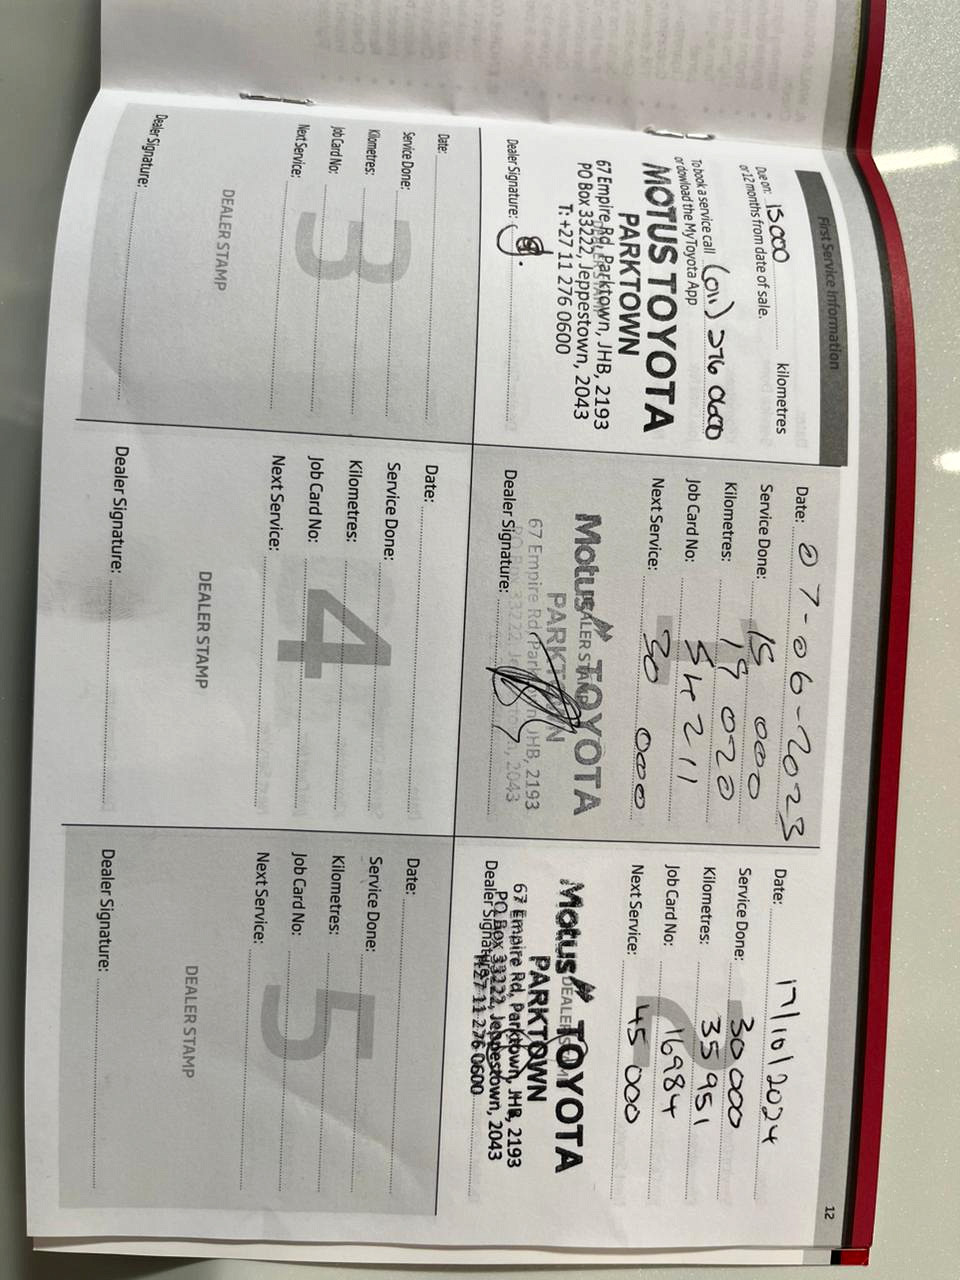 First Service Information
12
Due on: 15000 kilometres
or 12 months from date of sale.
To book a service call (011) 276 0600
or dowload the MyToyota App
MOTUS TOYOTA
PARKTOWN
67 Empire Rd, Parktown, JHB, 2193
PO Box 33222, Jeppestown, 2043
T: +27 11 276 0600
Dealer Signature:
Date: 07-06-2023
Service Done: 15 000
Kilometres: 19 020
Job Card No: 54211
Next Service: 30 000
Motus TOYOTA
DEALER STAMP
PARKTOWN
67 Empire Rd, Parktown, JHB, 2193
PO Box 33222, Jeppestown, 2043
Dealer Signature:
Date: 17/10/2024
Service Done: 30 000
Kilometres: 35 951
Job Card No: 16984
Next Service: 45 000
2
Motus TOYOTA
DEALER STAMP
PARKTOWN
67 Empire Rd, Parktown, JHB, 2193
PO Box 33222, Jeppestown, 2043
T: +27 11 276 0600
Dealer Signature:
Date:
Service Done:
Kilometres:
Job Card No:
Next Service:
3
DEALER STAMP
Dealer Signature:
Date:
Service Done:
Kilometres:
Job Card No:
Next Service:
4
DEALER STAMP
Dealer Signature:
Date:
Service Done:
Kilometres:
Job Card No:
Next Service:
5
DEALER STAMP
Dealer Signature: